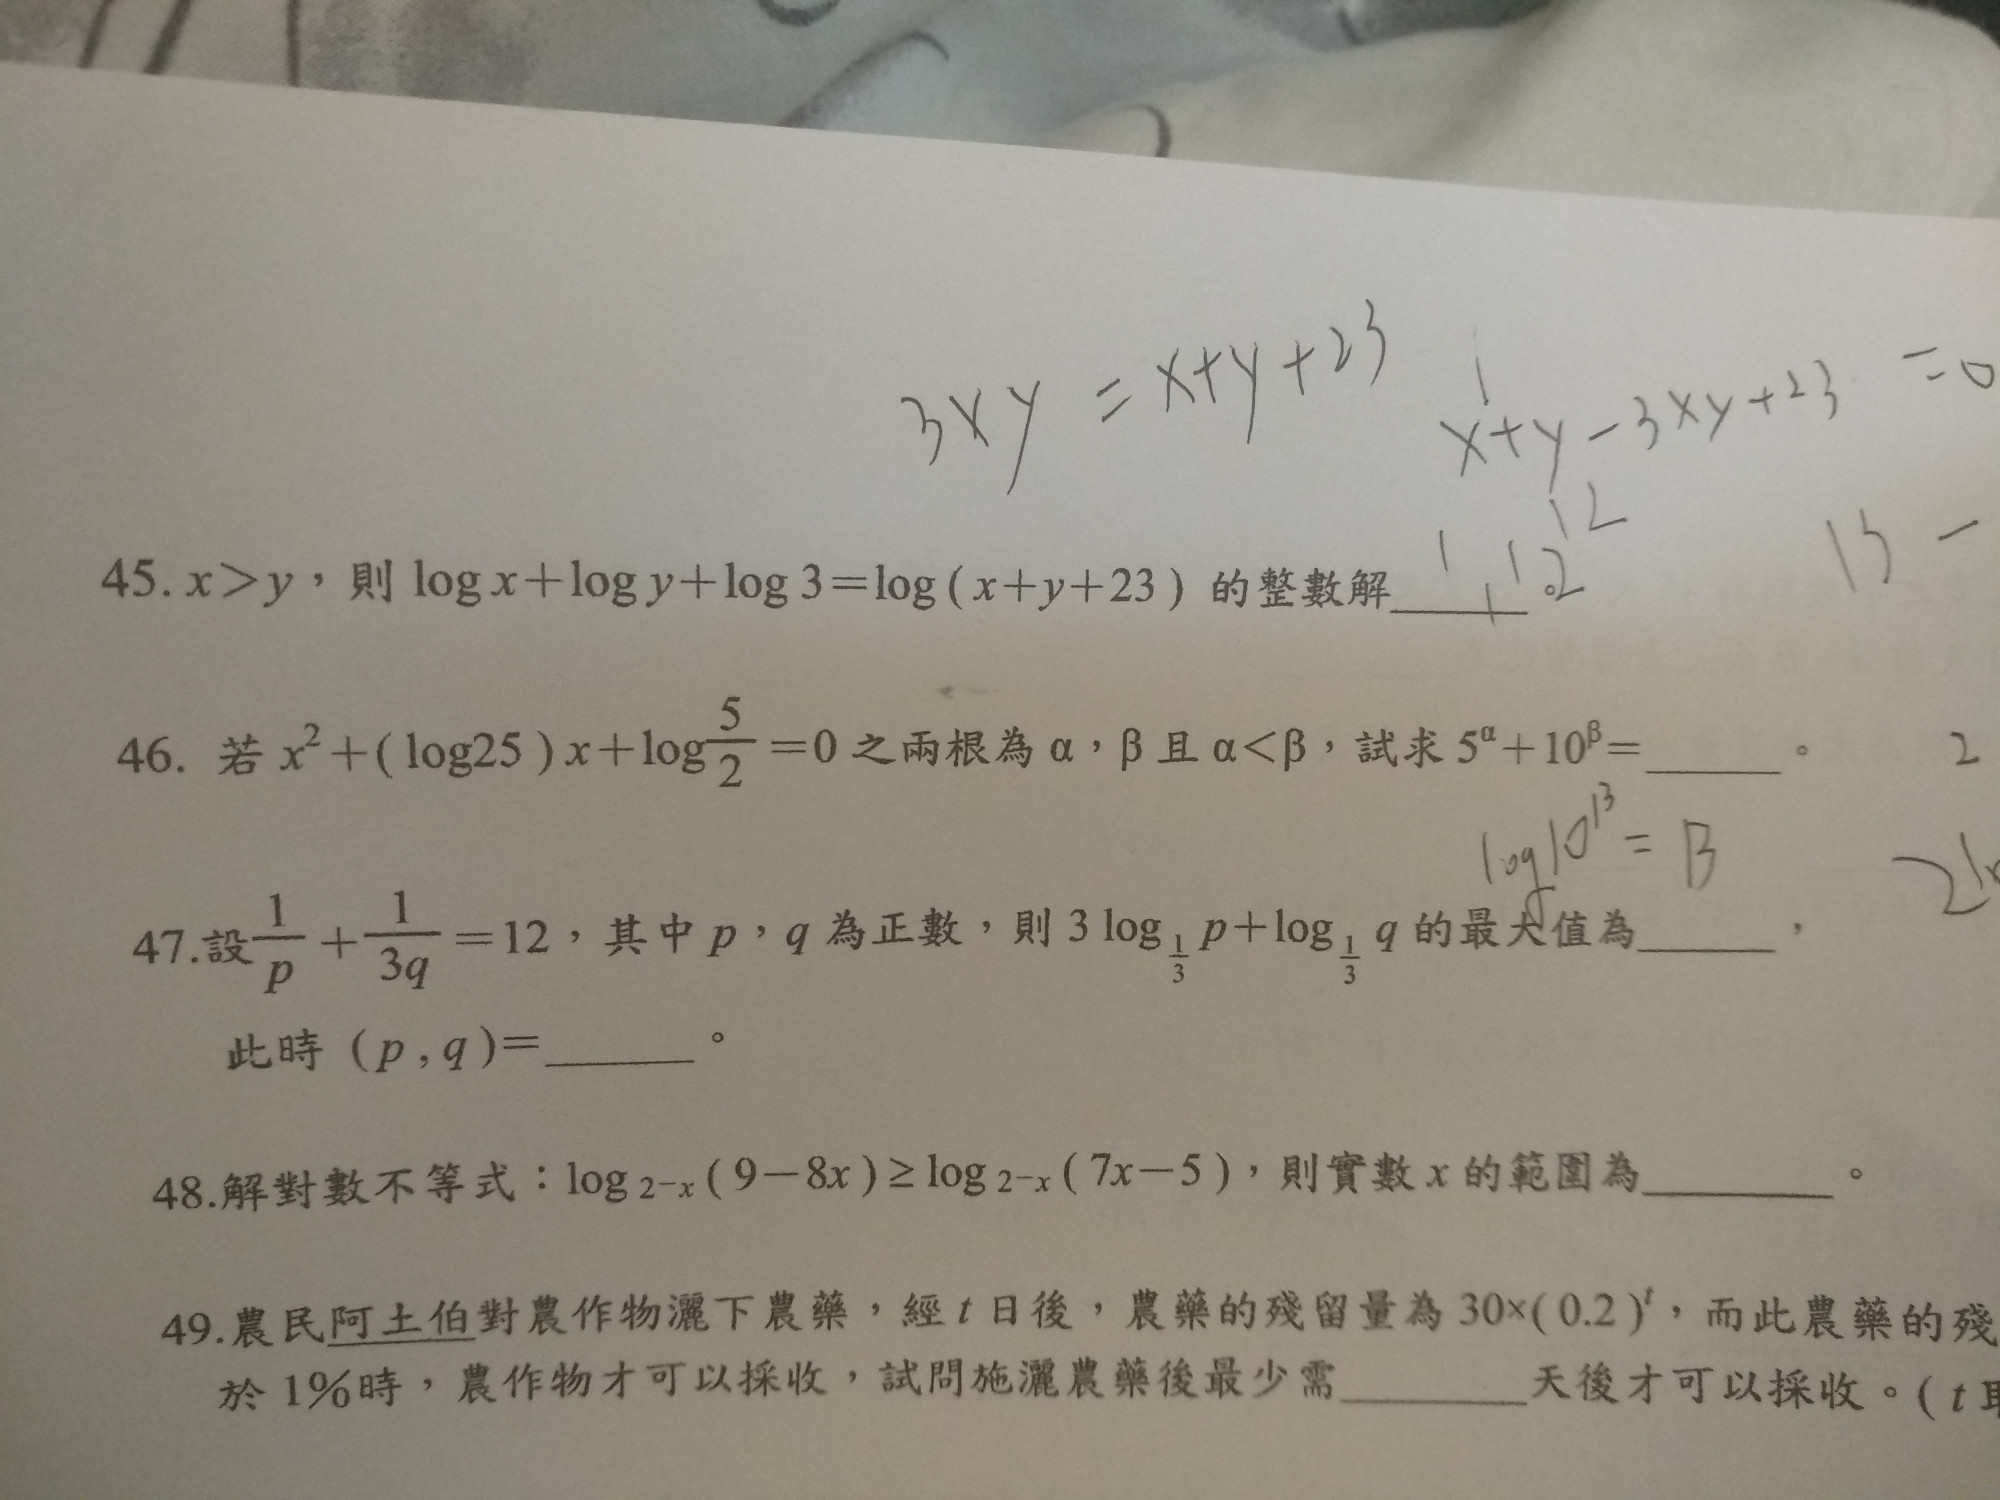 3xy = x+y+23
x+y-3xy+23 = 0
12
13 -
45. x>y，則 log x+log y+log 3=log ( x+y+23 ) 的整數解______。 1, 12
46. 若 x²+( log25 ) x+log 5/2 =0 之兩根為 α，β 且 α<β，試求 5^α+10^β=______。 2
log10^β = β
47.設 1/p + 1/3q =12，其中 p，q 為正數，則 3 log_{1/3} p+log_{1/3} q 的最大值為______，
此時 ( p , q )=______。
48.解對數不等式：log_{2-x} ( 9-8x ) ≥ log_{2-x} ( 7x-5 )，則實數 x 的範圍為______。
49.農民阿土伯對農作物灑下農藥，經 t 日後，農藥的殘留量為 30×( 0.2 )^t，而此農藥的殘
於 1%時，農作物才可以採收，試問施灑農藥後最少需______天後才可以採收。( t